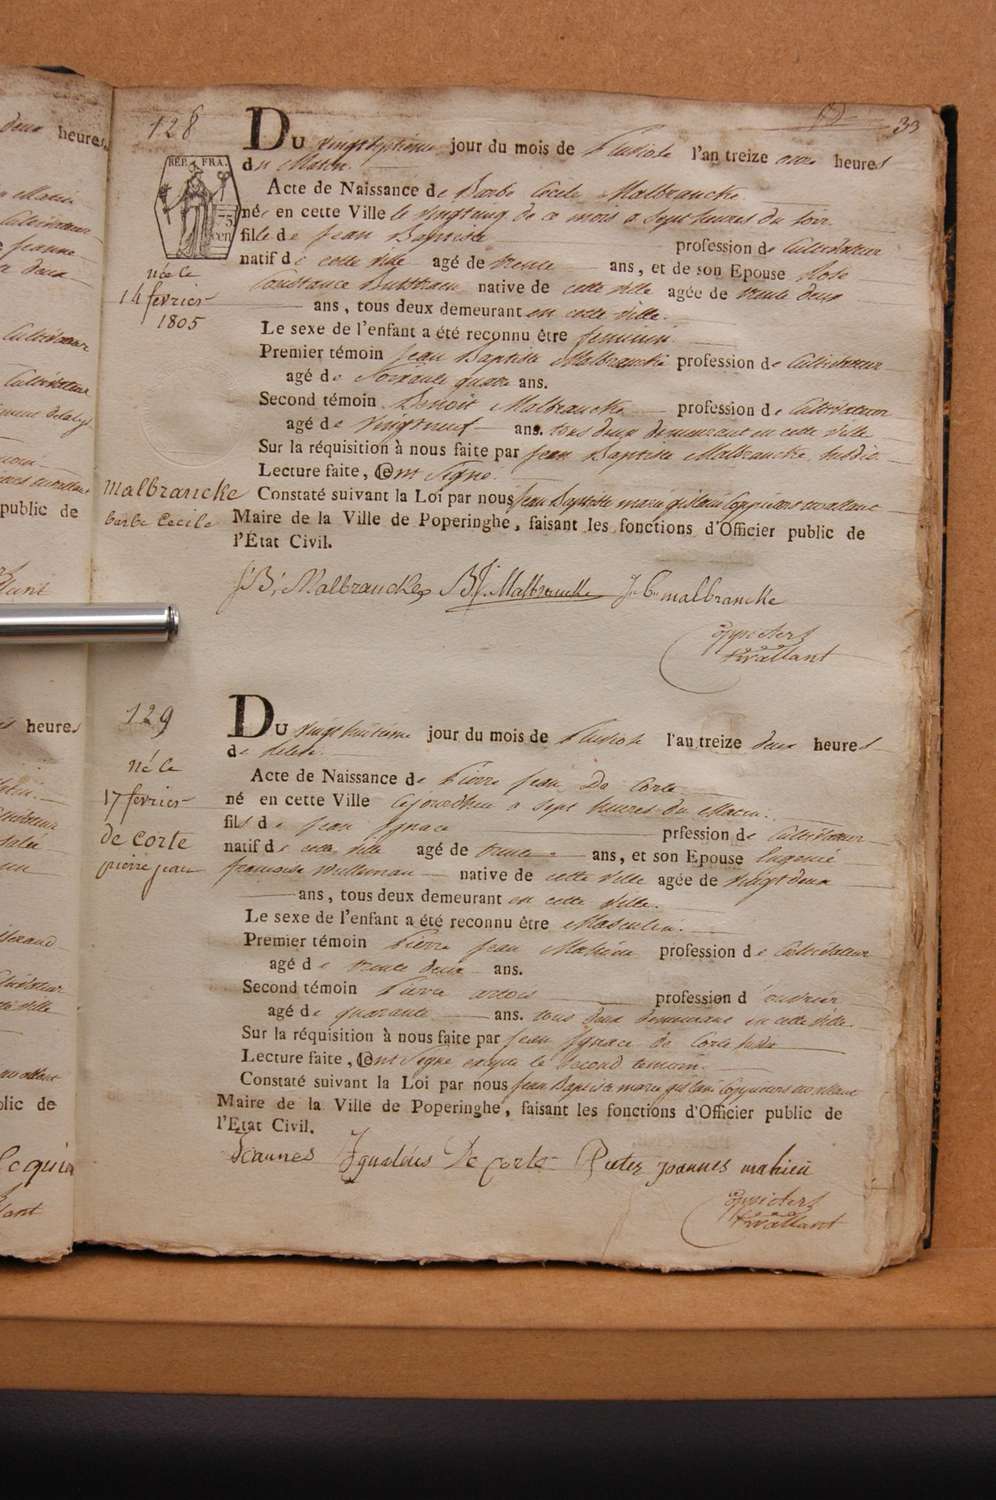 33
128
DU vingtseptieme jour du mois de Pluviose l'an treize onze heures
du Matin
Acte de Naissance de Barbe Cecile Malbrancke
née en cette Ville le vingtcinq de ce mois a sept heures du soir
fille de Jean Baptiste profession de Cultivateur
natif de cette ville agé de trente ans, et de son Epouse Rose
Constance native de cette ville agée de trente deux
ans, tous deux demeurant en cette ville.
Le sexe de l'enfant a été reconnu être feminin
Premier témoin Jean Baptiste Malbrancke profession de Cultivateur
agé de Soixante quatre ans.
Second témoin Benoit Malbrancke profession de Cultivateur
agé de vingtneuf ans. tous deux demeurant en cette ville
Sur la réquisition à nous faite par Jean Baptiste Malbrancke susdit
Lecture faite, Ont Signé
Constaté suivant la Loi par nous Jean Baptiste marie
Maire de la Ville de Poperinghe, faisant les fonctions d'Officier public de
l'État Civil.
REP. FRA.
75
cen
née le
14 fevrier
1805
malbrancke
barbe Cecile
J: B: Malbrancke B: J: Malbrancke J: b: malbrancke
129
DU vingthuitieme jour du mois de Pluviose l'an treize deux heures
de relevé
Acte de Naissance de Pierre Jean De Corte
né en cette Ville cejourdhui a sept heures du Matin.
fils de Jean Ignace prfession de Cultivateur
natif de cette ville agé de trente ans, et son Epouse Eugenie
françoise native de cette ville agée de vingt deux
ans, tous deux demeurant en cette ville.
Le sexe de l'enfant a été reconnu être Masculin.
Premier témoin Pierre Jean Mahieu profession de Cultivateur
agé de trente deux ans.
Second témoin Pierre profession d'ouvrier
agé de quarante ans. tous deux demeurant en cette ville.
Sur la réquisition à nous faite par Jean Ignace de Corte susdit
Lecture faite, Ont Signé excepté le Second temoin.
Constaté suivant la Loi par nous Jean Baptiste marie
Maire de la Ville de Poperinghe, faisant les fonctions d'Officier public de
l'État Civil.
né le
17 fevrier
de corte
pierre jean
Joannes Ignatius De Corte Pieter joannes mahieu